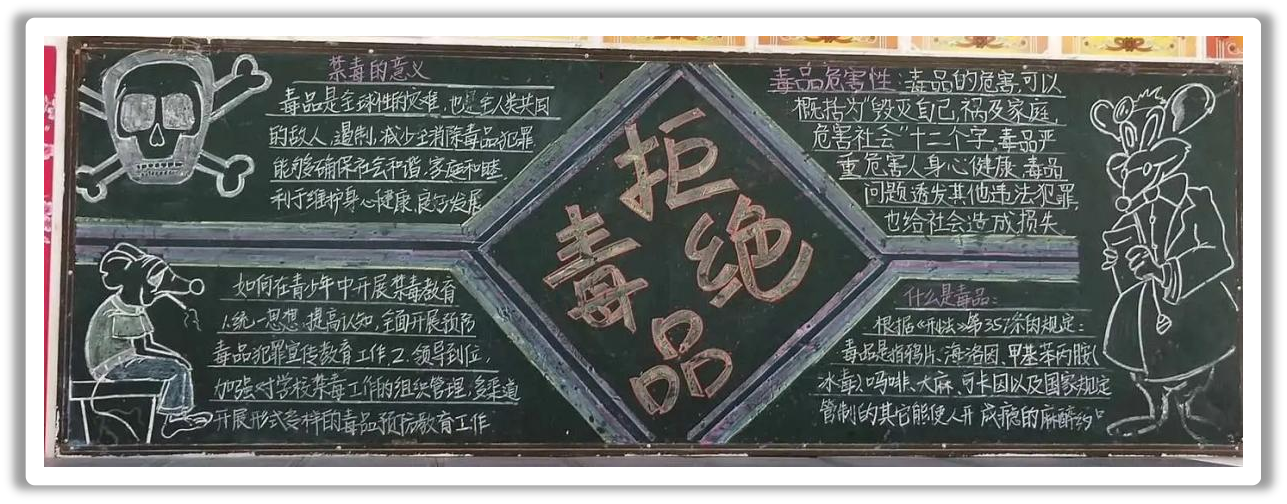 禁毒的意义
毒品是全球性的灾难，也是全人类共同
的敌人，遏制，减少至消除毒品犯罪，
能够确保社会和谐，家庭和睦，
利于维护身心健康，良好发展
拒绝
毒品
毒品危害性：毒品的危害，可以
概括为"毁灭自己，祸及家庭，
危害社会"十二个字，毒品严
重危害人身心健康，毒品
问题诱发其他违法犯罪，
也给社会造成损失
如何在青少年中开展禁毒教育
1.统一思想，提高认知，全面开展预防
毒品犯罪宣传教育工作2.领导到位，
加强对学校禁毒工作的组织管理，多渠道
开展形式多样的毒品预防教育工作
什么是毒品：
根据《刑法》第357条的规定：
毒品是指鸦片、海洛因、甲基苯丙胺(
冰毒)、吗啡、大麻、可卡因以及国家规定
管制的其它能使人
成瘾的麻醉药"